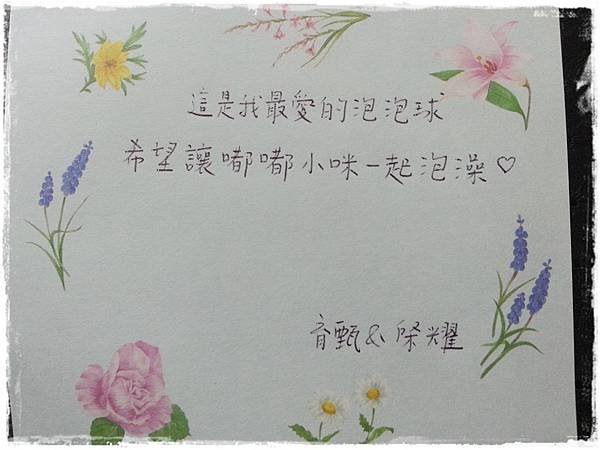 這是我最愛的泡泡球
希望讓嘟嘟小咪一起泡澡♡
育甄&榮耀